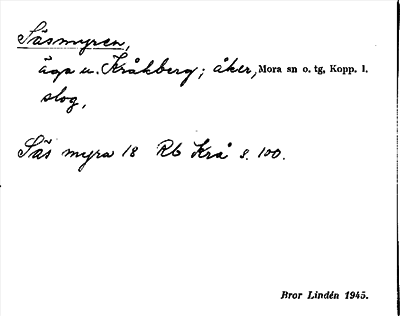 Säsmyren,
äga u. Kråkberg; åker, Mora sn o. tg, Kopp. l.
slog,
Säs myra 18 Rb Krå s. 100.
Bror Lindén 1945.